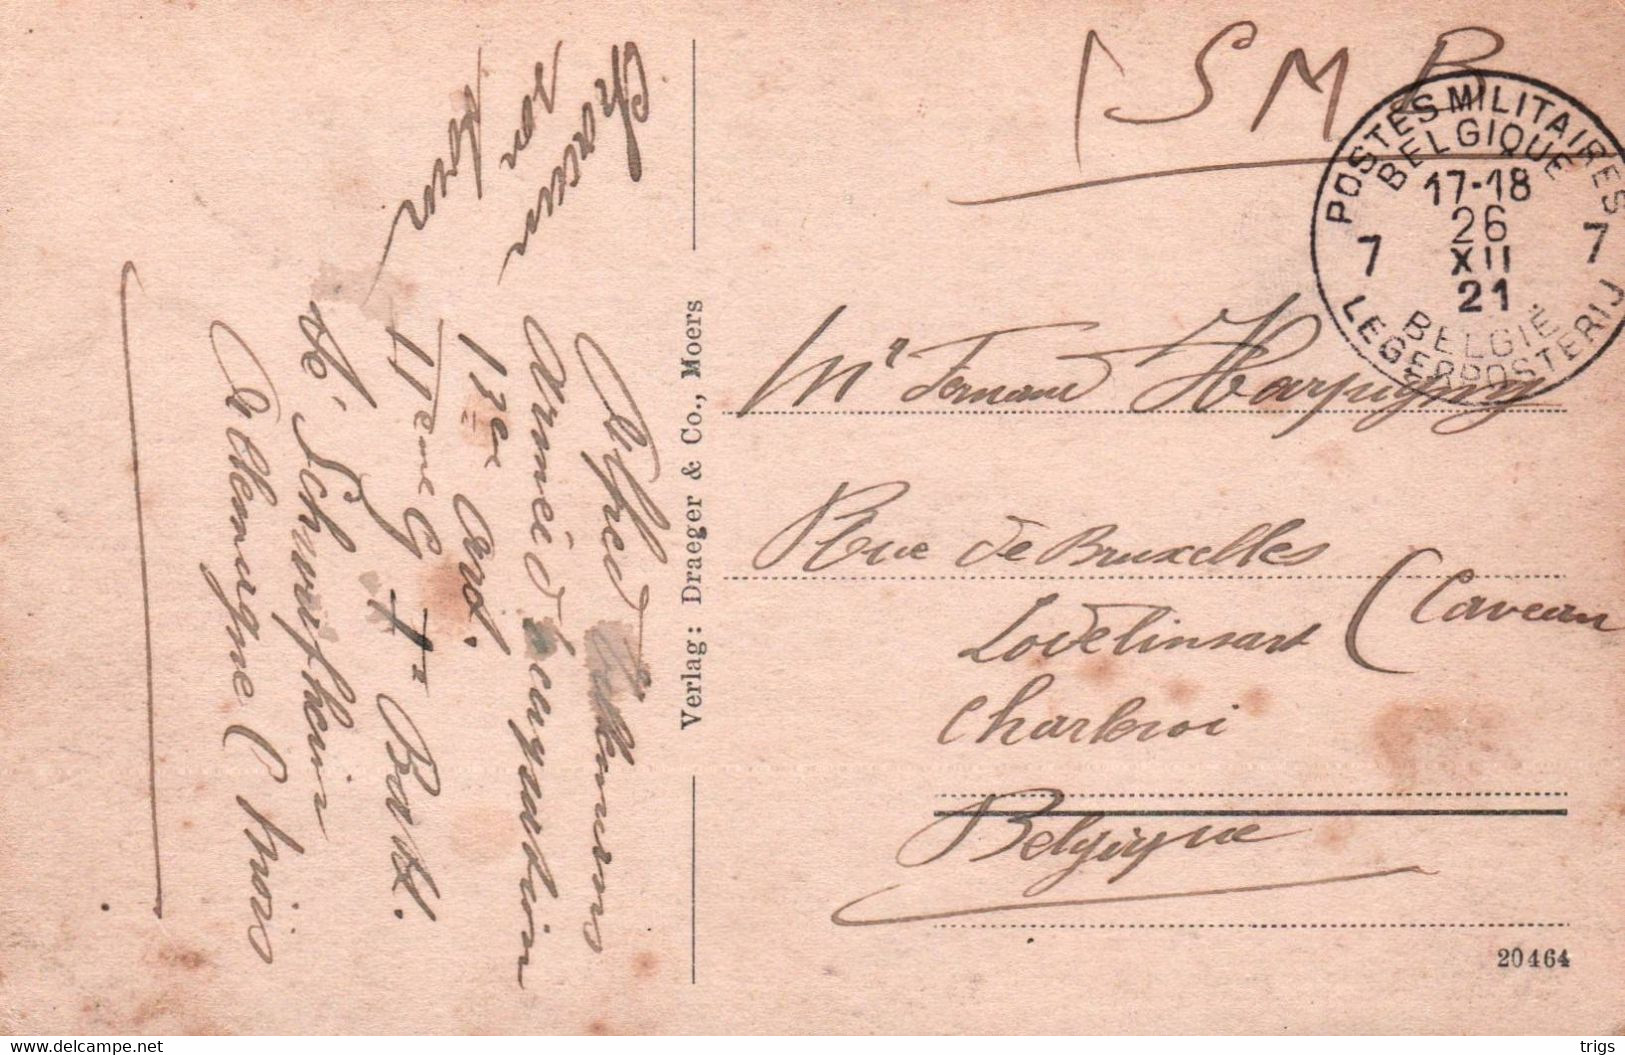 Chacun
son
tour
Alfred
Armée d'occupation
13em Art.
4 Batt.
Allemagne
Verlag: Draeger & Co., Moers
S M
POSTES MILITAIRES
BELGIQUE
17-18
26
XII
21
7 7
BELGIE
LEGERPOSTERIJ
Mr Fernand Harpigny
Rue de Bruxelles
Lodelinsart (Caveau
Charleroi
Belgique
20464
www.delcampe.net
trigs